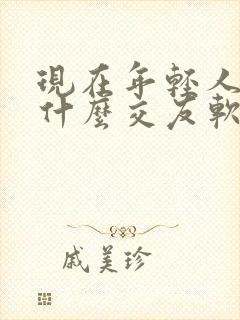 現在年輕人
什麼交友軟
戚美珍